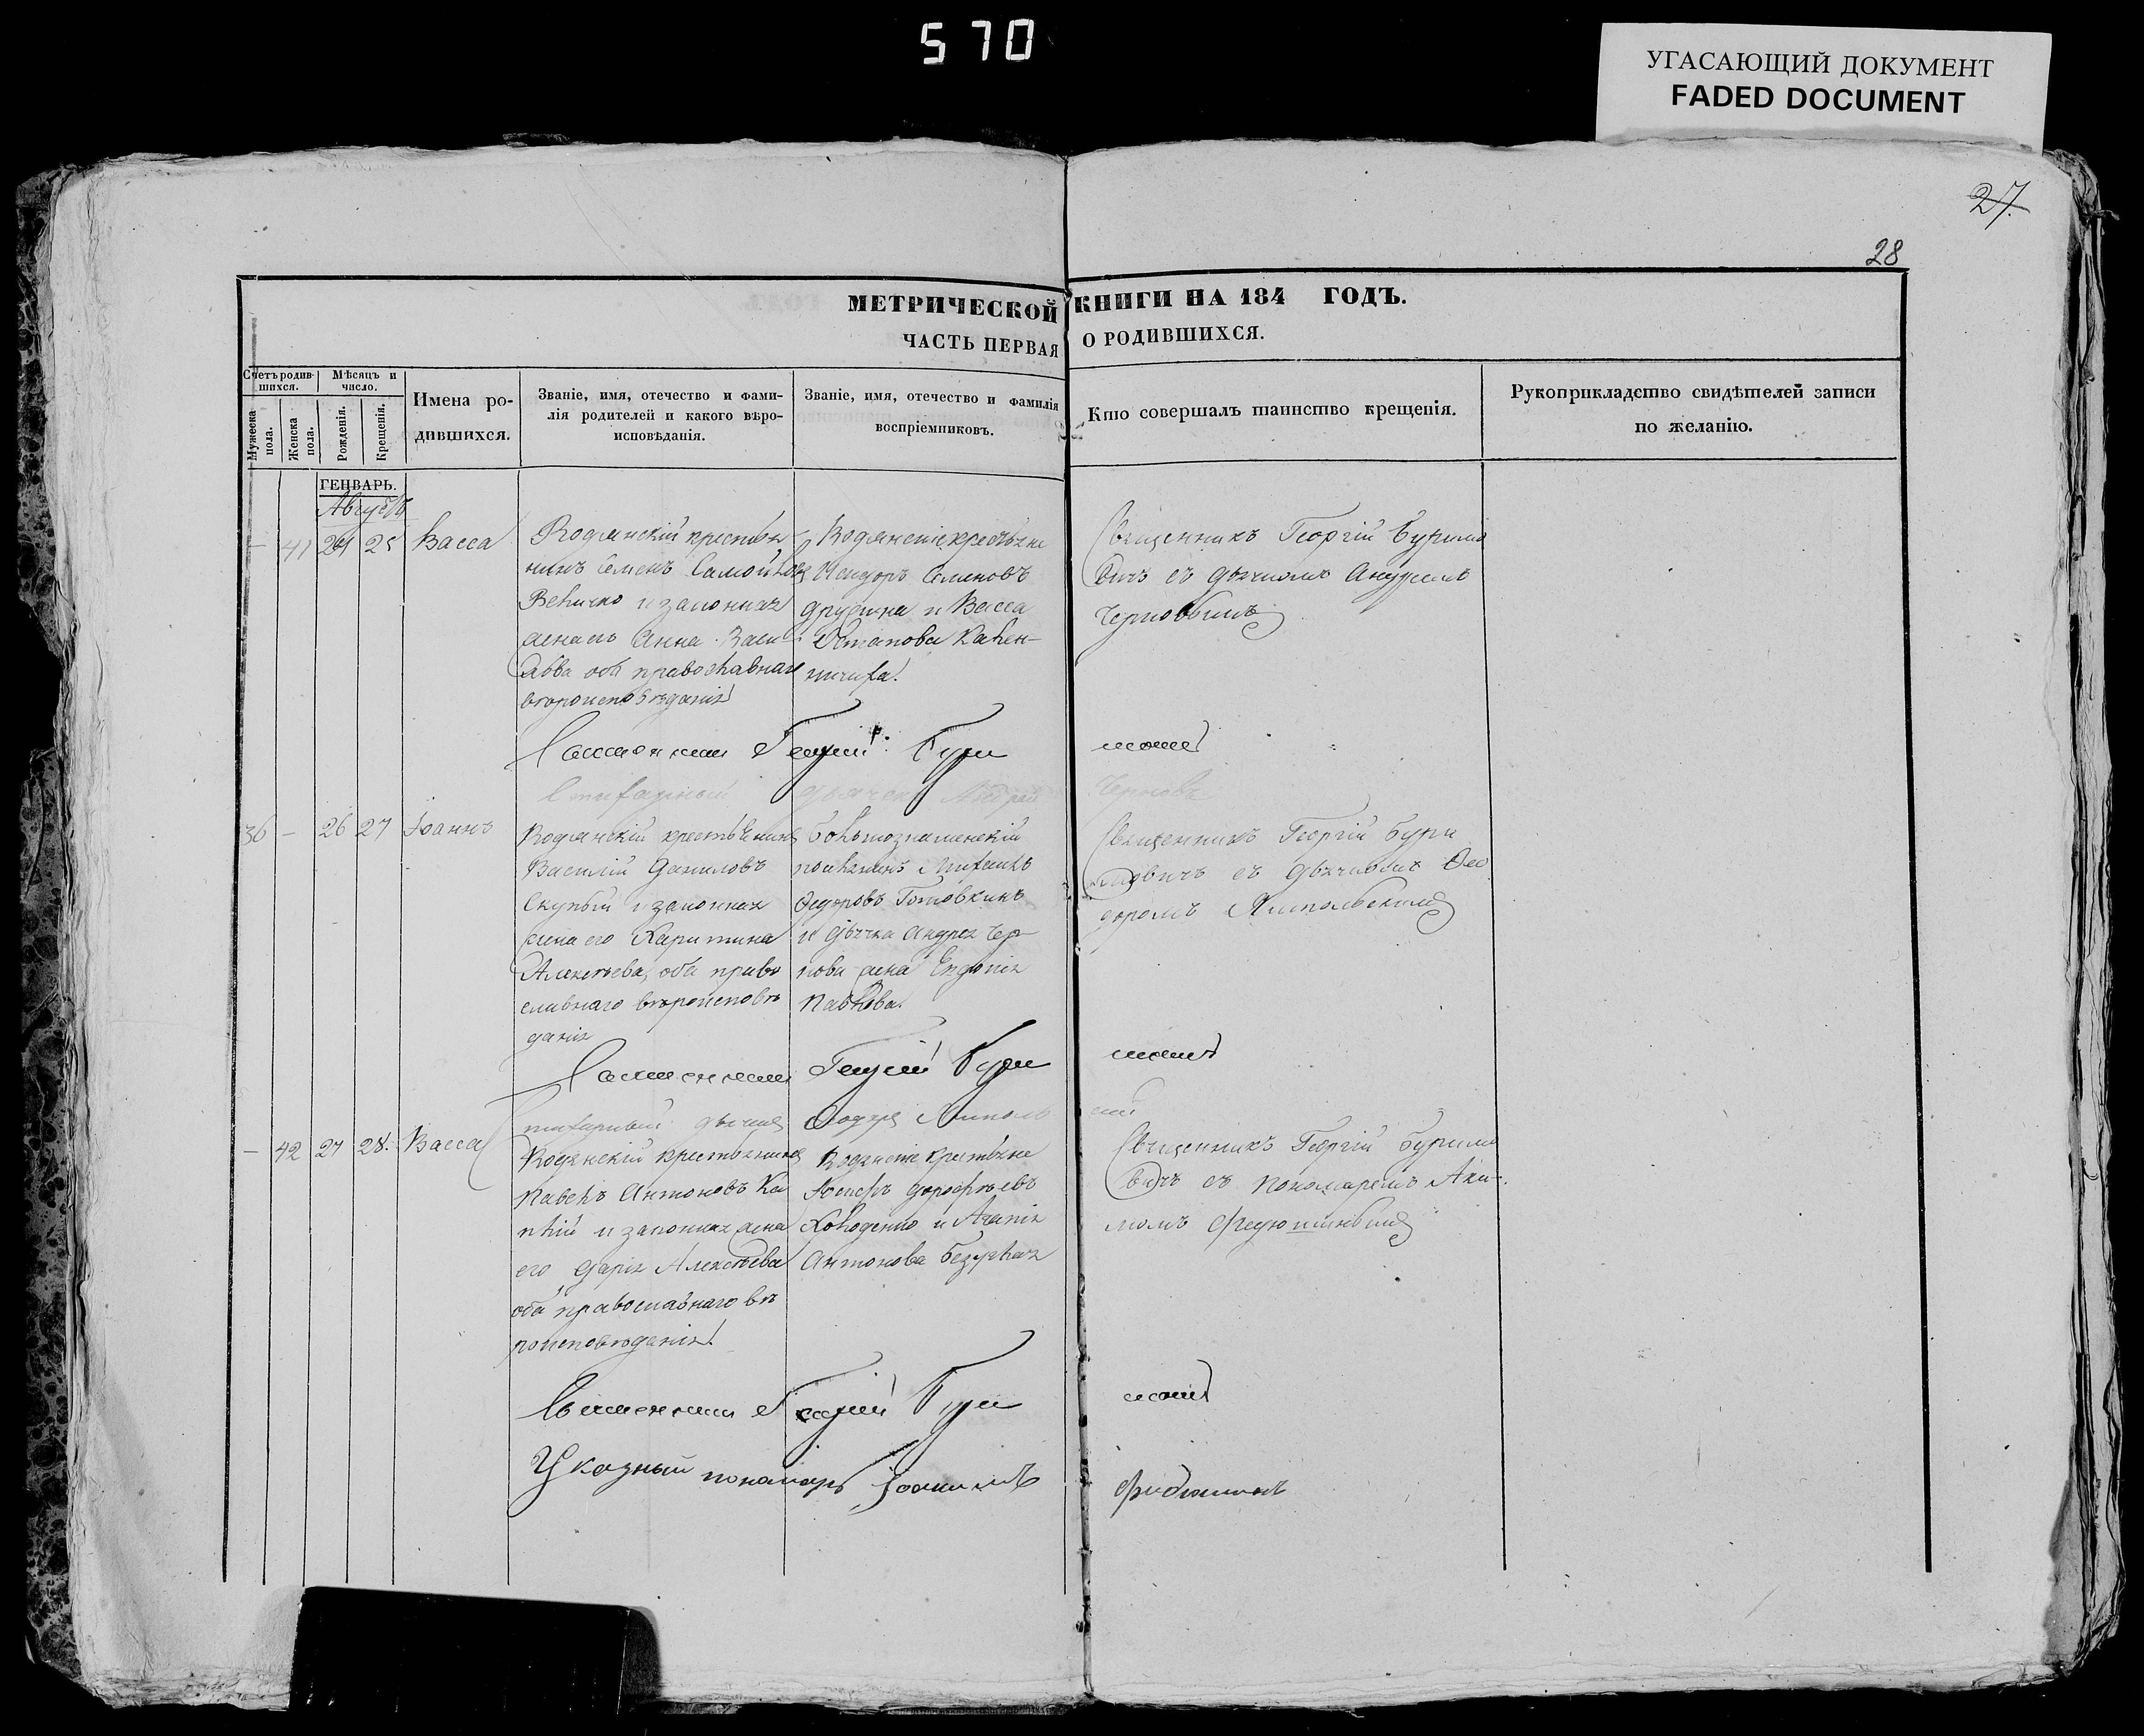 570
УГАСАЮЩИЙ ДОКУМЕНТ
FADED DOCUMENT
27.
28
МЕТРИЧЕСКОЙ КНИГИ НА 184 ГОДЪ.
ЧАСТЬ ПЕРВАЯ О РОДИВШИХСЯ.
Счетъ родив-
шихся.
Мужеска
пола.
Женска
пола.
Мѣсяцъ и
число.
Рожденія.
Крещенія.
Имена ро-
дившихся.
Званіе, имя, отечество и фами-
лія родителей и какого вѣро-
исповѣданія.
Званіе, имя, отечество и фамилія
воспріемниковъ.
Кто совершалъ таинство крещенія.
Рукоприкладство свидѣтелей записи
по желанію.
ГЕНВАРЬ.
Августъ
— 41 24 25 Васса
Водянскій крестья
нинъ Семенъ Самойловъ
Величко и законная
жена его Анна Васи
лѣева оба православнаго
вѣроисповѣданія
Водянскіе крестьяне
Исидоръ Семеновъ
и Васса
Остапова Кален-
ичиха.
Священникъ Георгій Буримо
вичъ съ дьячкомъ Андреемъ
Черновымъ
Священникъ Георгій Буримовичъ
дьячекъ Андрей Черновъ
36 — 26 27 Іоаннъ
Водянскій крестьянинъ
Василій Даниловъ
Скупый и законная
жена его Харитина
Алексѣева, оба право
славнаго вѣроисповѣ
данія
Большознаменскій
поселянинъ Михаилъ
Федоровъ Готовкинъ
и дьячка Андрея Чер
нова жена Евдокія
Павлова.
Священникъ Георгій Бури
мовичъ съ дьячкомъ Ѳео
доромъ Ямпольскимъ
Священникъ Георгій Буримовичъ
— 42 27 28. Васса
Водянскій крестьянинъ
Павелъ Антоновъ Ка
пѣй и законная жена
его Дарія Алексѣева
оба православнаго вѣ
роисповѣданія.
Водянскіе крестьяне
Іосифъ Дорофѣевъ
Холоденко и Агапія
Антонова Безуглая
Священникъ Георгій Буримо
вичъ съ пономаремъ Аки-
момъ Федюшинымъ
Священникъ Георгій Буримовичъ
Указный пономарь Іоакимъ Федюшинъ